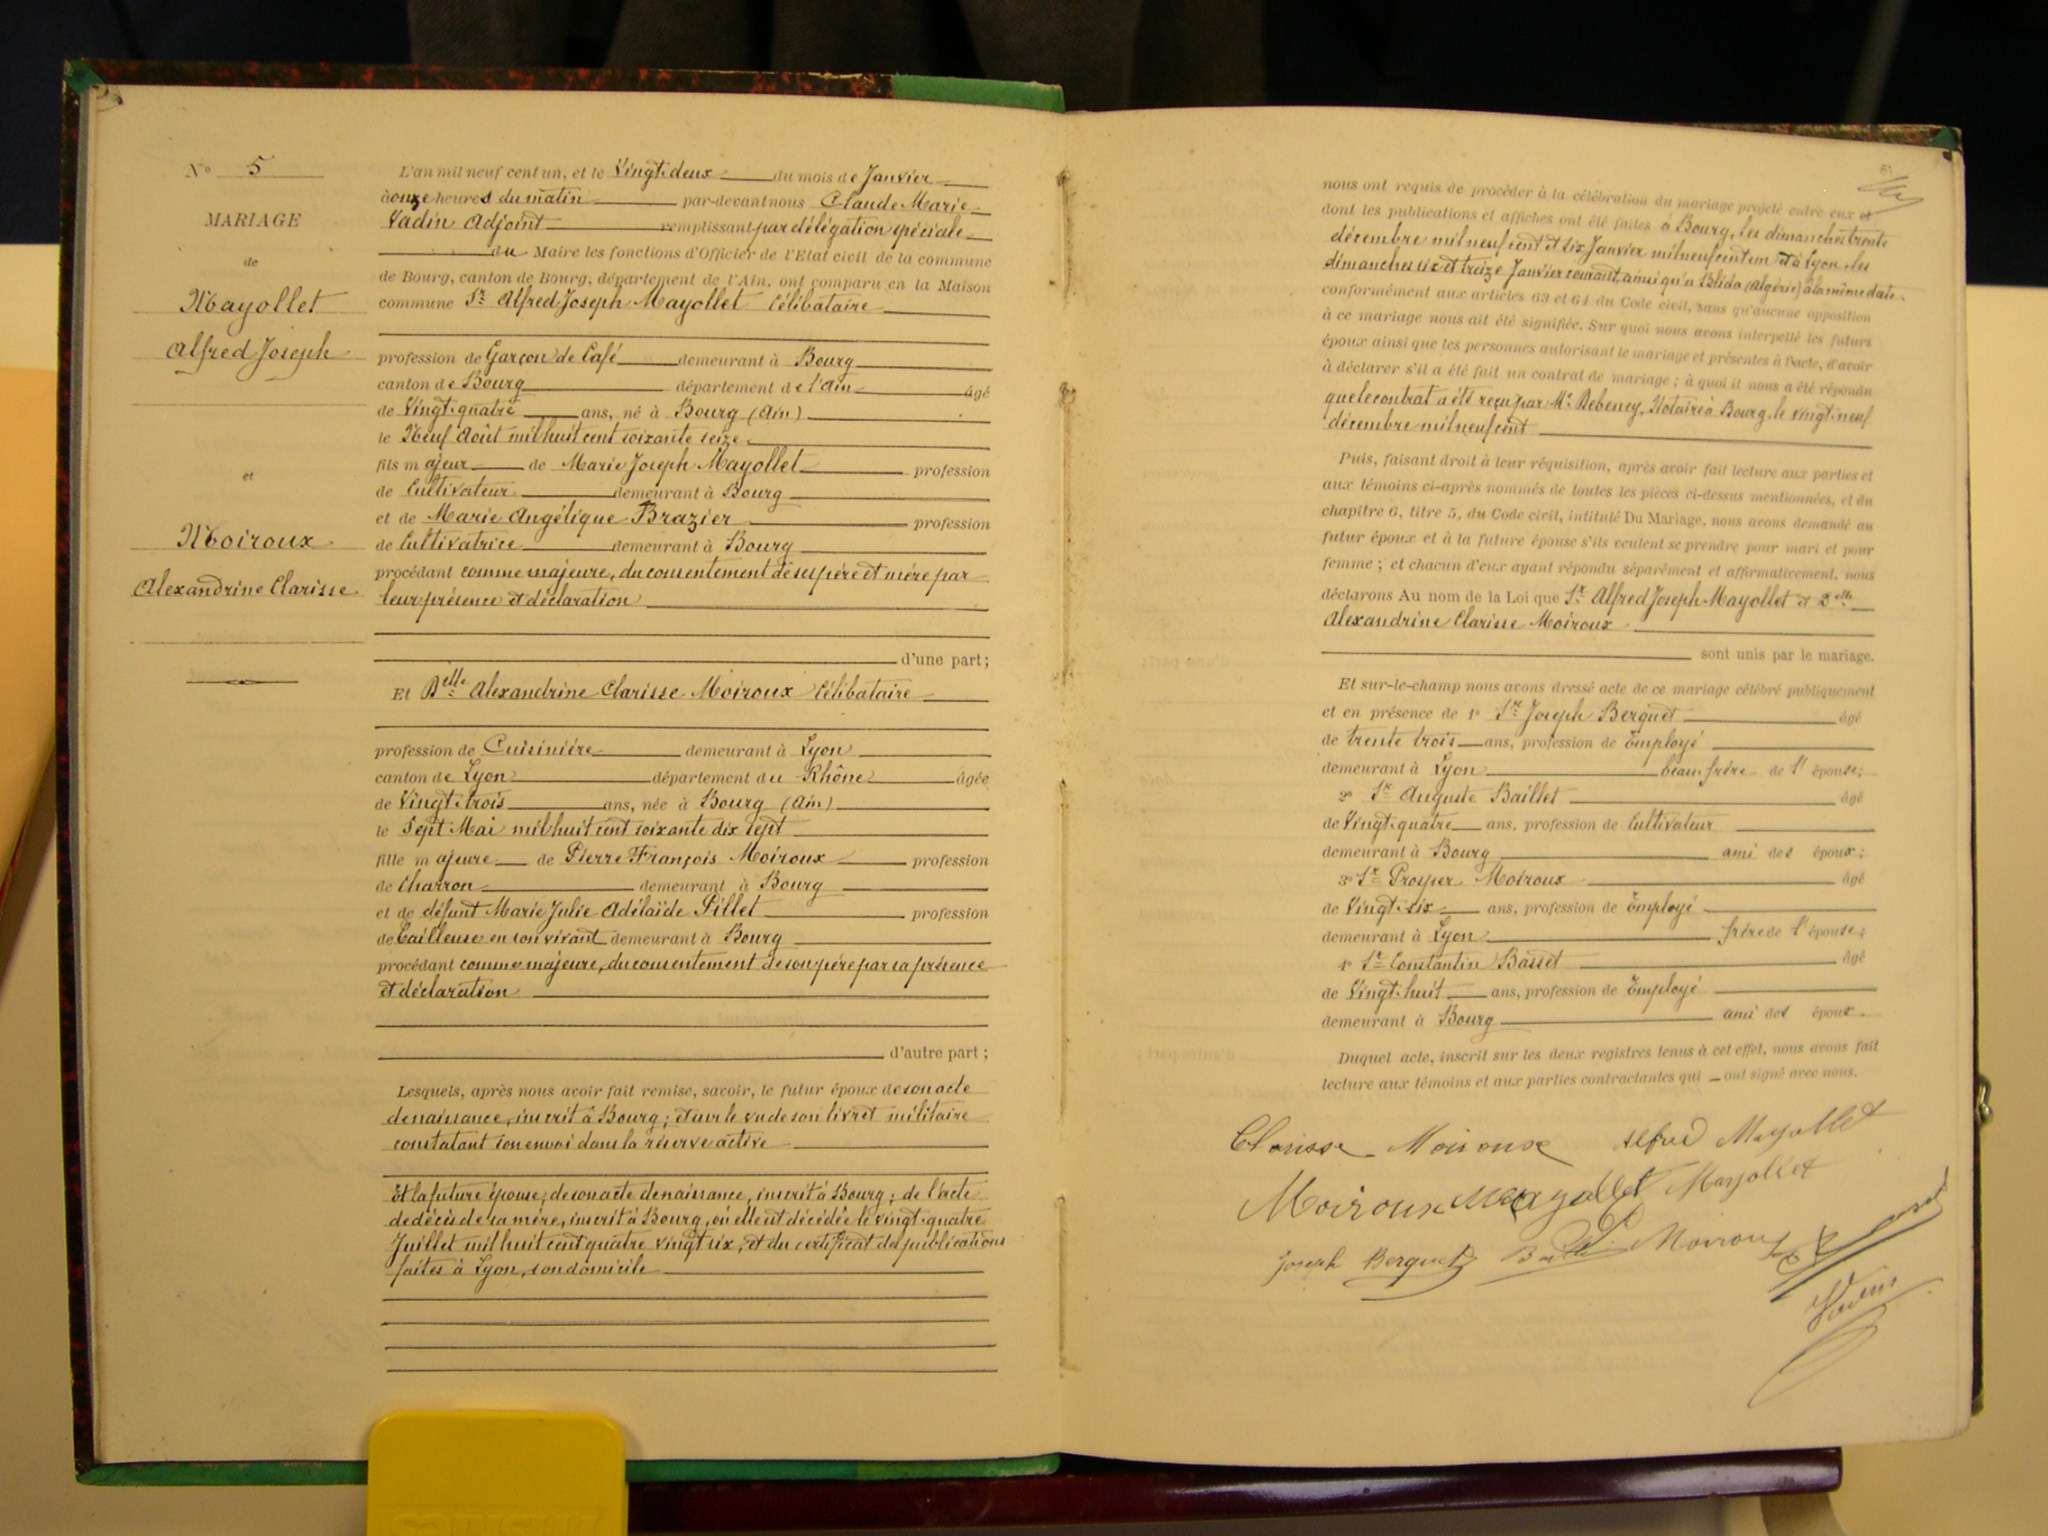 N° 5
MARIAGE
de
Mayollet
Alfred Joseph
et
Moiroux
Alexandrine Clarisse
L'an mil neuf cent un, et le Vingt deux du mois de Janvier
à onze heures du matin par-devant nous Claude Marie
Vadin Adjoint remplissant par délégation spéciale
du Maire les fonctions d'Officier de l'Etat civil de la commune
de Bourg, canton de Bourg, département de l'Ain, ont comparu en la Maison
commune Sr Alfred Joseph Mayollet Célibataire
profession de Garçon de Café demeurant à Bourg
canton de Bourg département de l'Ain âgé
de Vingt-quatre ans, né à Bourg (Ain)
le Neuf Août mil huit cent soixante seize
fils majeur de Marie Joseph Mayollet profession
de Cultivateur demeurant à Bourg
et de Marie Angélique Brazier profession
de Cultivatrice demeurant à Bourg
procédant comme majeure, du consentement de ses père et mère par
leur présence et déclaration
d'une part;
Et Delle Alexandrine Clarisse Moiroux Célibataire
profession de Cuisinière demeurant à Lyon
canton de Lyon département du Rhône âgée
de Vingt-trois ans, née à Bourg (Ain)
le Sept Mai mil huit cent soixante dix sept
fille majeure de Pierre François Moiroux profession
de Charron demeurant à Bourg
et de défunt Marie Julie Adélaïde Pillet profession
de Tailleuse en son vivant demeurant à Bourg
procédant comme majeure, du consentement de son père par sa présence
et déclaration
d'autre part;
Lesquels, après nous avoir fait remise, savoir, le futur époux de son acte
de naissance, inscrit à Bourg; et sur le vu de son livret militaire
constatant son envoi dans la réserve active
Et la future épouse; de son acte de naissance, inscrit à Bourg; de l'acte
de décès de sa mère, inscrit à Bourg, où elle est décédée le vingt-quatre
Juillet mil huit cent quatre vingt six, et du certificat des publications
faites à Lyon, son domicile
5
nous ont requis de procéder à la célébration du mariage projeté entre eux et
dont les publications et affiches ont été faites à Bourg, les dimanches trente
décembre mil neuf cent et six Janvier mil neuf cent un et à Lyon, les
dimanches six et treize Janvier courant, ainsi qu'à Blida (Algérie) à la même date.
conformément aux articles 63 et 64 du Code civil, sans qu'aucune opposition
à ce mariage nous ait été signifiée. Sur quoi nous avons interpellé les futurs
époux ainsi que les personnes autorisant le mariage et présentes à l'acte, d'avoir
à déclarer s'il a été fait un contrat de mariage; à quoi il nous a été répondu
que le contrat a été reçu par Me Debeney, Notaire à Bourg, le vingt-neuf
décembre mil neuf cent
Puis, faisant droit à leur réquisition, après avoir fait lecture aux parties et
aux témoins ci-après nommés de toutes les pièces ci-dessus mentionnées, et du
chapitre 6, titre 5, du Code civil, intitulé Du Mariage, nous avons demandé au
futur époux et à la future épouse s'ils veulent se prendre pour mari et pour
femme; et chacun d'eux ayant répondu séparément et affirmativement, nous
déclarons Au nom de la Loi que Sr Alfred Joseph Mayollet et Delle
Alexandrine Clarisse Moiroux
sont unis par le mariage.
Et sur-le-champ nous avons dressé acte de ce mariage célébré publiquement
et en présence de 1° Sr Joseph Berguet âgé
de trente trois ans, profession de Employé
demeurant à Lyon beau frère de l'épouse;
2° Sr Auguste Baillet âgé
de Vingt-quatre ans, profession de Cultivateur
demeurant à Bourg ami des époux;
3° Sr Prosper Moiroux âgé
de Vingt-six ans, profession de Employé
demeurant à Lyon frère de l'épouse;
4° Sr Constantin Basset âgé
de Vingt-huit ans, profession de Employé
demeurant à Bourg ami des époux.
Duquel acte, inscrit sur les deux registres tenus à cet effet, nous avons fait
lecture aux témoins et aux parties contractantes qui ont signé avec nous.
Clarisse Moiroux Alfred Mayollet
Moiroux Mayollet Mayollet
Joseph Berguet Moiroux
Vadin